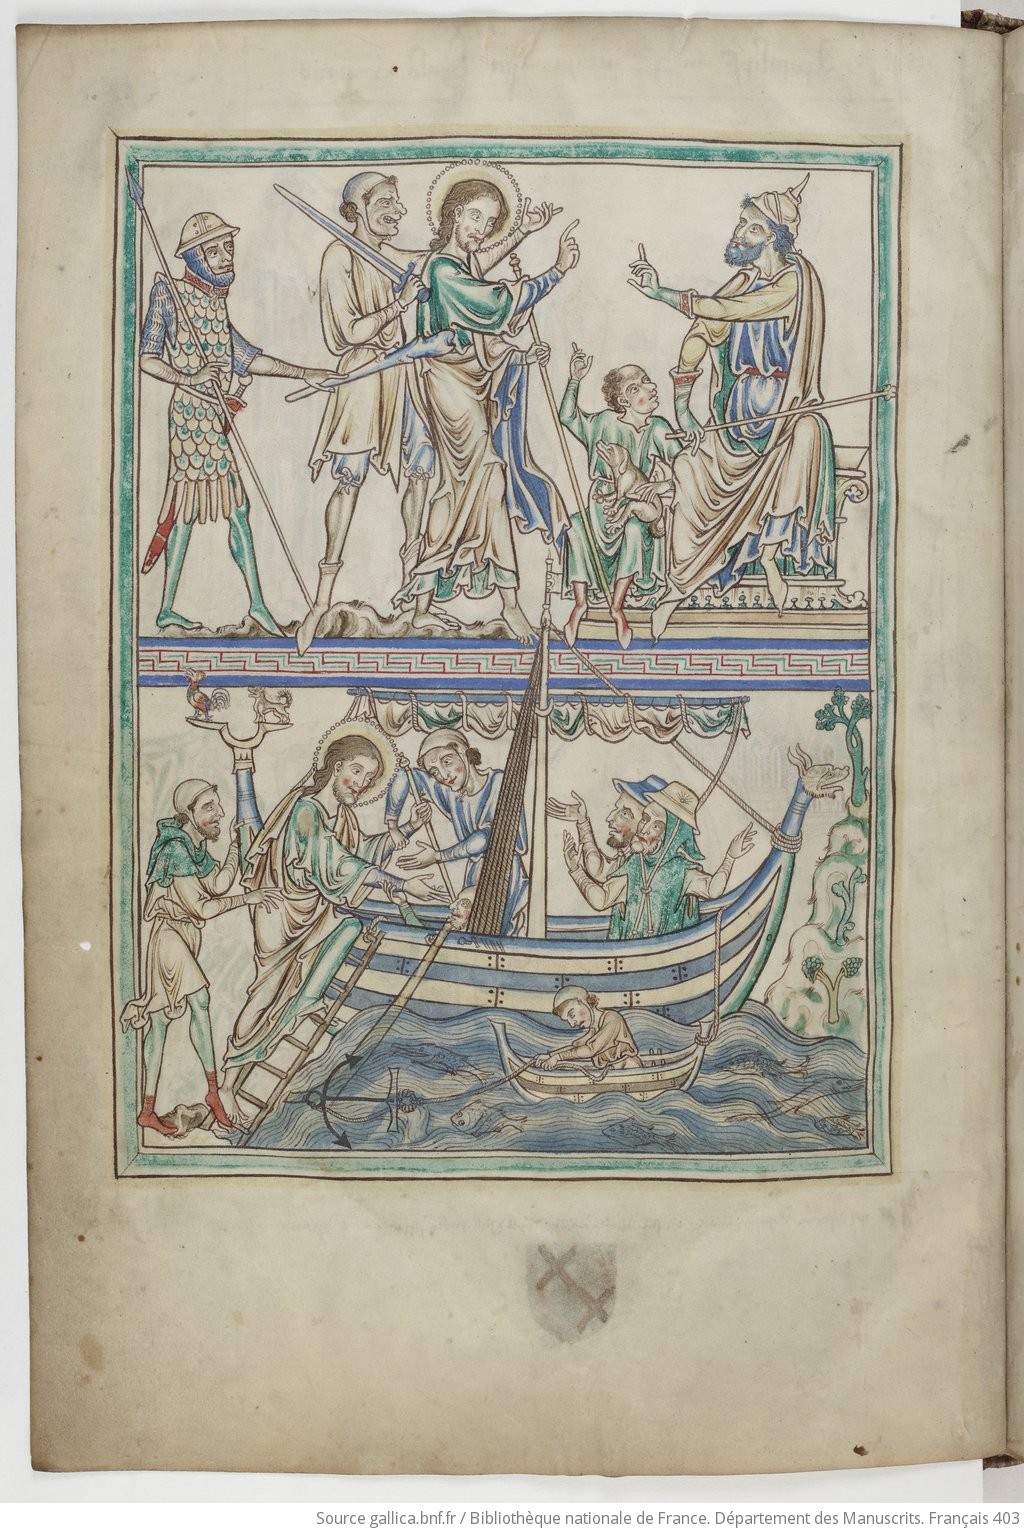 Source gallica.bnf.fr / Bibliothèque nationale de France. Département des Manuscrits. Français 403